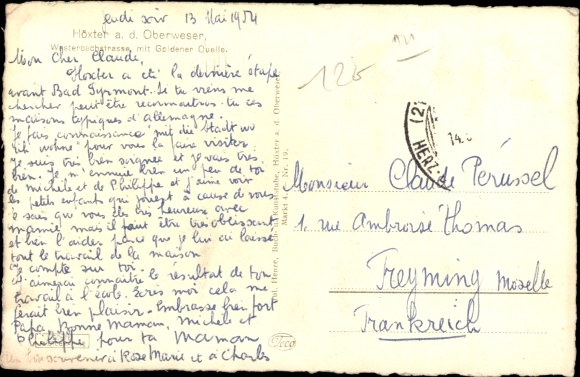 jeudi soir 13 Mai 1954
Höxter a. d. Oberweser,
Westerbachstrasse, mit Goldener Quelle.
Mon Cher Claude,
Höxter a été la dernière étape
avant Bad Pyrmont. Si tu viens me
chercher peut être reconnaitras-tu ces
maisons typiques d'Allemagne.
Je fais connaissance "mit die Stadt wo
ich wohne" pour vous la faire visiter.
Je suis très bien soignée et je vais très
bien. Je m'ennuie bien un peu de toi
de Michèle et de Philippe et j'aime voir
les petits enfants qui jouent à cause de vous
je sais que vous êtes très heureux avec
mamie mais il faut être très obéissant
et bien l'aider parce que je lui ai laissé
tout le travail de la maison
Je compte sur toi.
J'aimerai connaître le résultat de ton
travail à l'école. Ecris moi cela me
ferait bien plaisir. Embrasse bien fort
Papa, Bonne Maman, Michèle et
Philippe pour ta Maman
bon souvenir à Rose Marie et à Charles
Höxter a. d. Oberweser
Markt 4. Nr. 19.
120
(2
HERZ
14.
Monsieur Claude Pérussel
1, rue Ambroise Thomas
Freyming Moselle
Frankreich